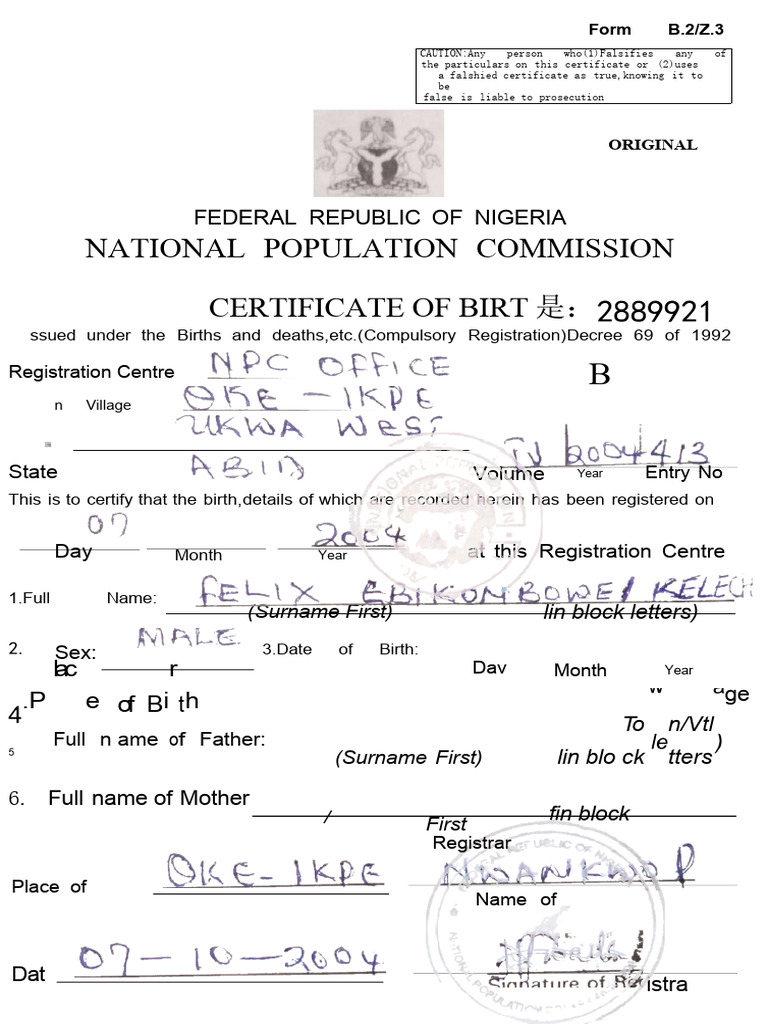 Form B.2/Z.3
CAUTION:Any person who(1)Falsifies any of
the particulars on this certificate or (2)uses
a falshied certificate as true,knowing it to
be
false is liable to prosecution
ORIGINAL
FEDERAL REPUBLIC OF NIGERIA
NATIONAL POPULATION COMMISSION
CERTIFICATE OF BIRT 是: 2889921
ssued under the Births and deaths,etc.(Compulsory Registration)Decree 69 of 1992
Registration Centre NPC OFFICE B
n Village OKE - IKPE
UKWA WEST
State ABIA IV 2004 413
Volume Year Entry No
This is to certify that the birth,details of which are recorded herein has been registered on
07 2004
Day Month Year at this Registration Centre
1.Full Name: FELIX EBIKOMBOWEI KELECH
(Surname First) lin block letters)
2. Sex: MALE 3.Date of Birth:
lac r Day Month Year
4.P e of Bi th ge
To n/Vtl
5 Full n ame of Father: le )
(Surname First) lin blo ck tters
6. Full name of Mother
/ First fin block
Registrar
Place of OKE-IKPE NWANKWO P
Name of
Dat 07-10-2004
Signature of Registra